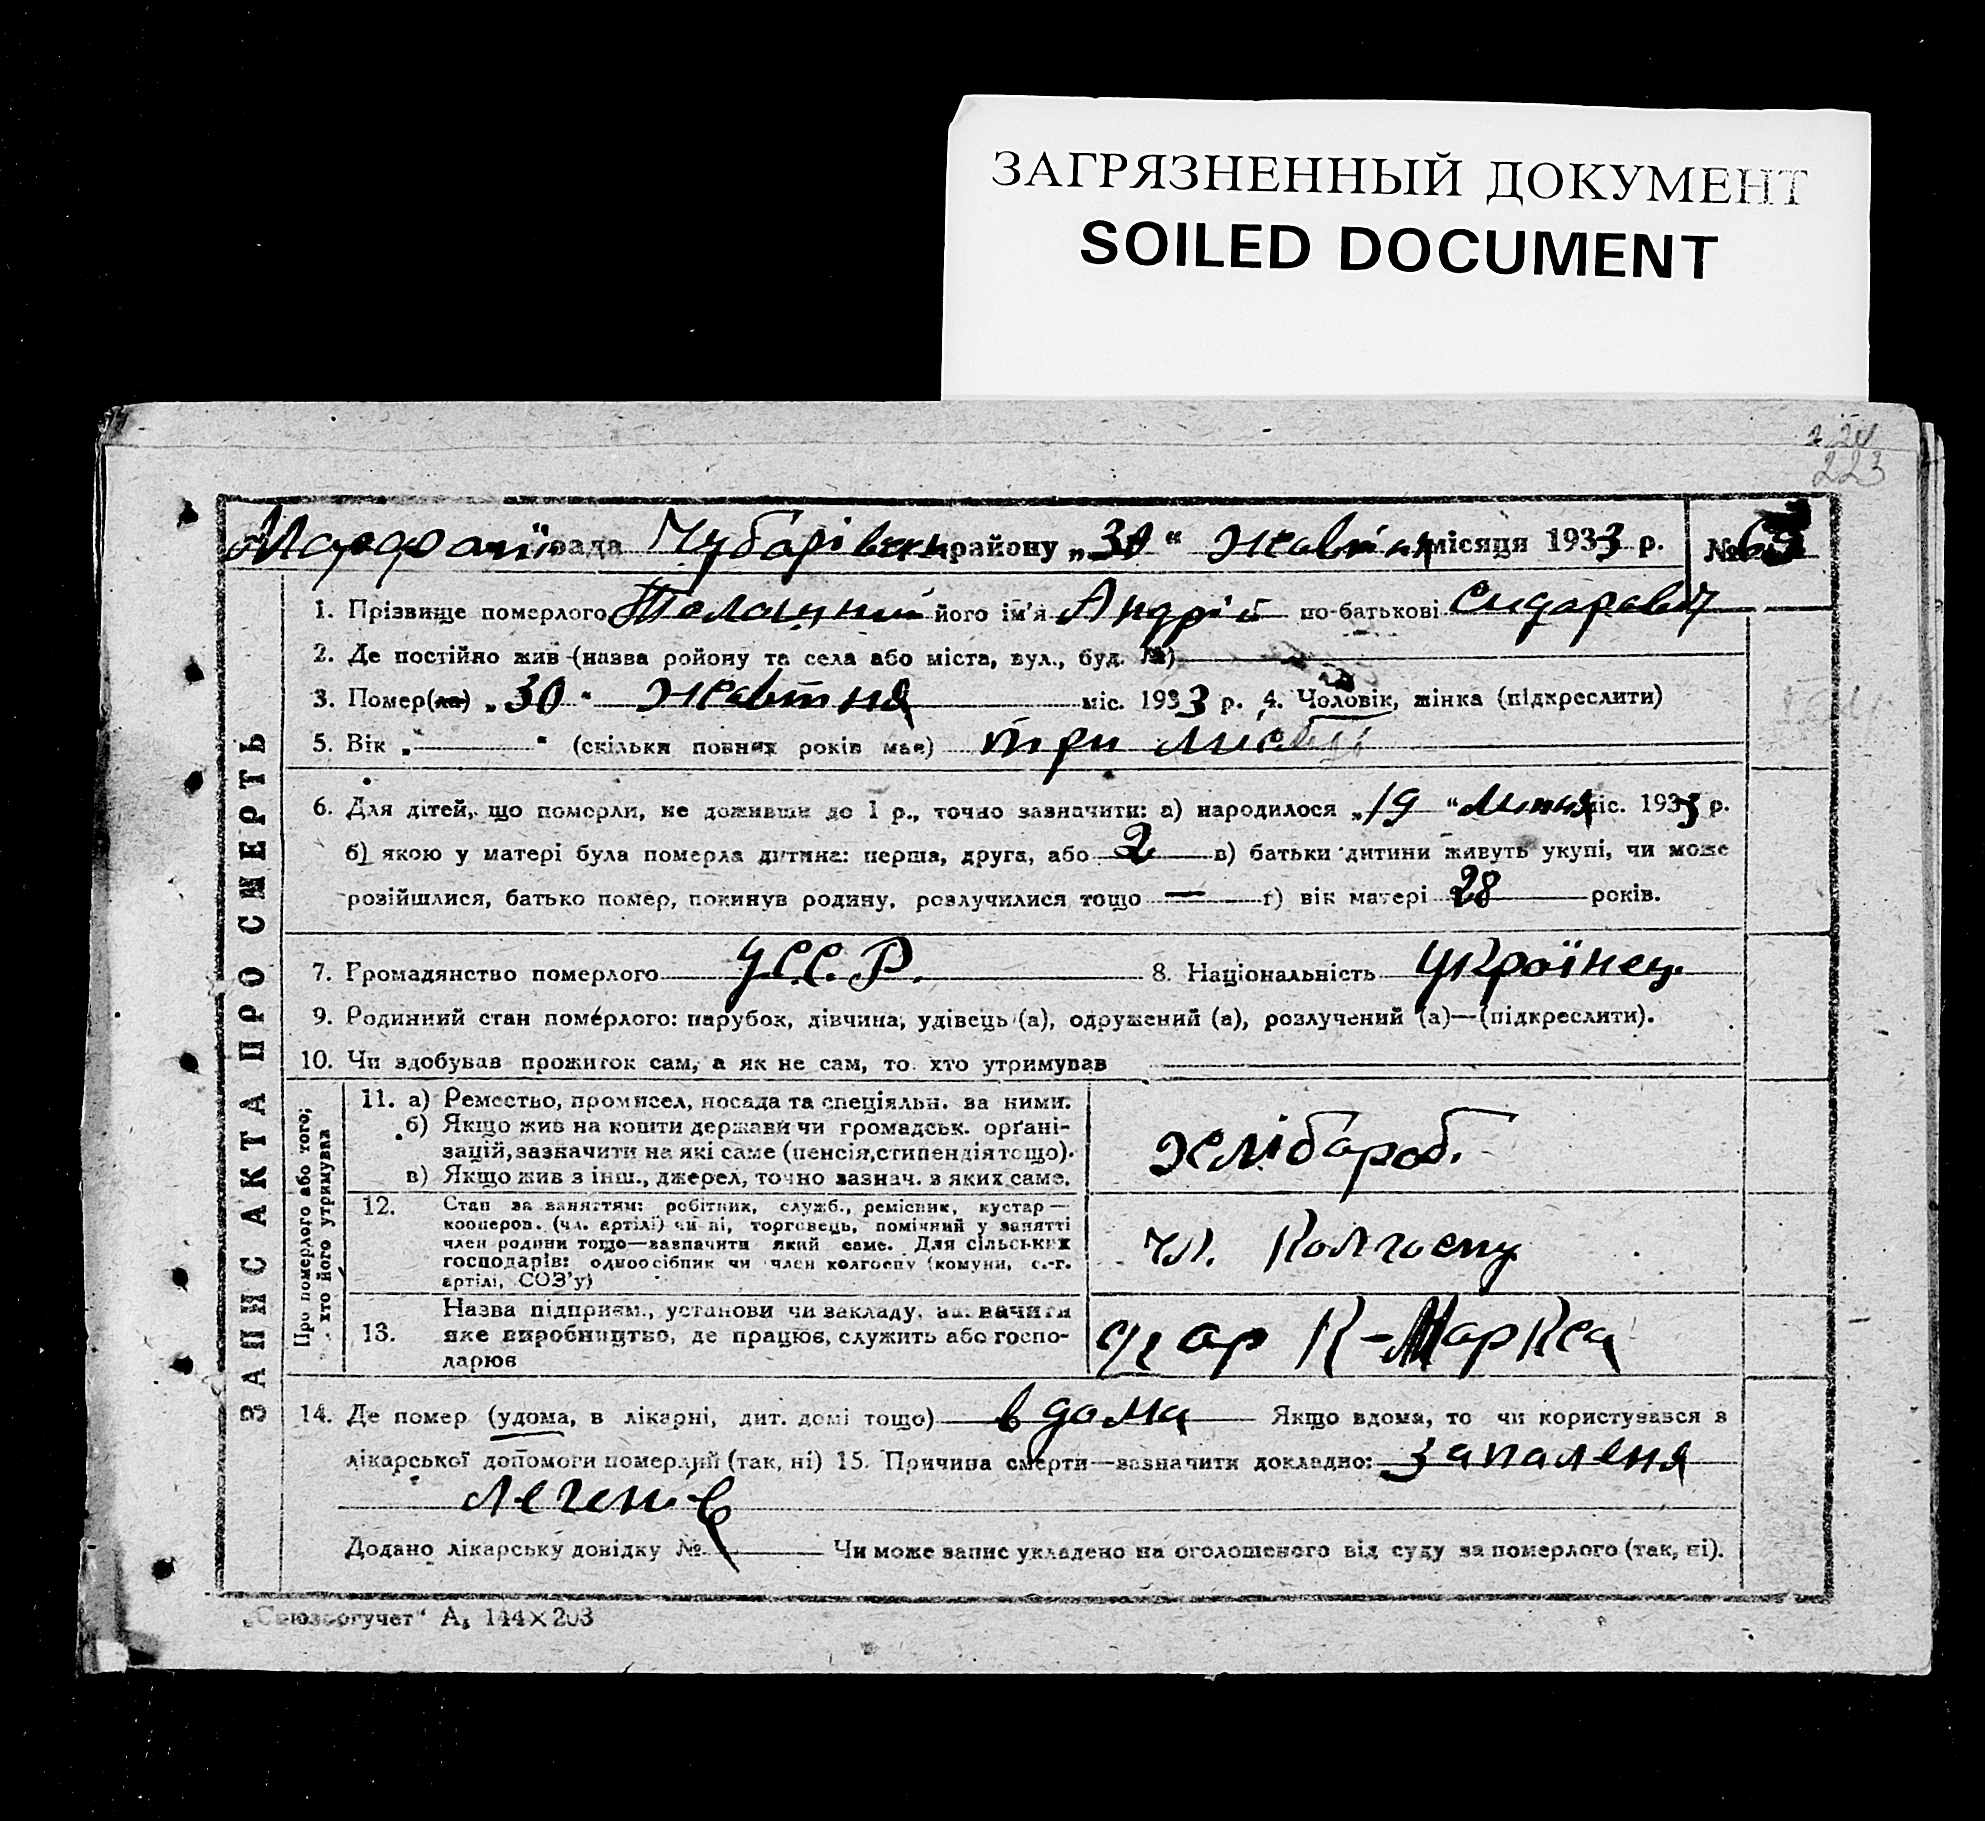 ЗАГРЯЗНЕННЫЙ ДОКУМЕНТ
SOILED DOCUMENT
223
ЗАПИС АКТА ПРО СМЕРТЬ
рада Чубарівськ району „30“ жовтня місяця 1933 р. №
1. Прізвище померлого його ім'я Андрій по-батькові Сидарович
2. Де постійно жив (назва ройону та села або міста, вул., буд. №)
3. Помер(ла) „30“ жовтня міс. 1933 р. 4. Чоловік, жінка (підкреслити)
5. Вік „—“ (скільки повних років має) три місяці
6. Для дітей, що померли, не доживши до 1 р., точно зазначити: а) народилося „19“ липня міс. 1933 р.
б) якою у матері була померла дитина: перша, друга, або 2 в) батьки дитини живуть укупі, чи може
розійшлися, батько помер, покинув родину, розлучилися тощо — г) вік матері 28 років.
7. Громадянство померлого У.С.С.Р. 8. Національність Українец.
9. Родинний стан померлого: парубок, дівчина, удівець (а), одружений (а), розлучений (а)—(підкреслити).
10. Чи здобував прожиток сам, а як не сам, то хто утримував
Про померлого або того, хто його утримував
11. а) Ремество, промисел, посада та спеціяльн. за ними.
б) Якщо жив на кошти держави чи громадськ. орґані-
зацій, зазначити на які саме (пенсія, стипендія тощо).
в) Якщо жив з інш., джерел, точно зазнач. з яких саме.
Хлібароб.
12. Стан за заняттям: робітник, служб., ремісник, кустар—
кооперов. (чл. артілі) чи ні, торговець, помічний у занятті
член родини тощо—зазначити який саме. Для сільських
господарів: одноосібник чи член колгоспу (комуни, с.-г.
артілі, СОЗ'у)
чл. Колгоспу
13. Назва підприєм., установи чи закладу, зазначити
яке виробництво, де працює, служить або госпо-
дарює
К-Маркса
14. Де помер (удома, в лікарні, дит. домі тощо) вдома Якщо вдома, то чи користувався з
лікарської допомоги померлий (так, ні) 15. Причина смерти—зазначити докладно: запаленя
легенів
Додано лікарську довідку № Чи може запис укладено на оголошеного від суду за померлого (так, ні).
„Союзоргучет“ А₅ 144×203